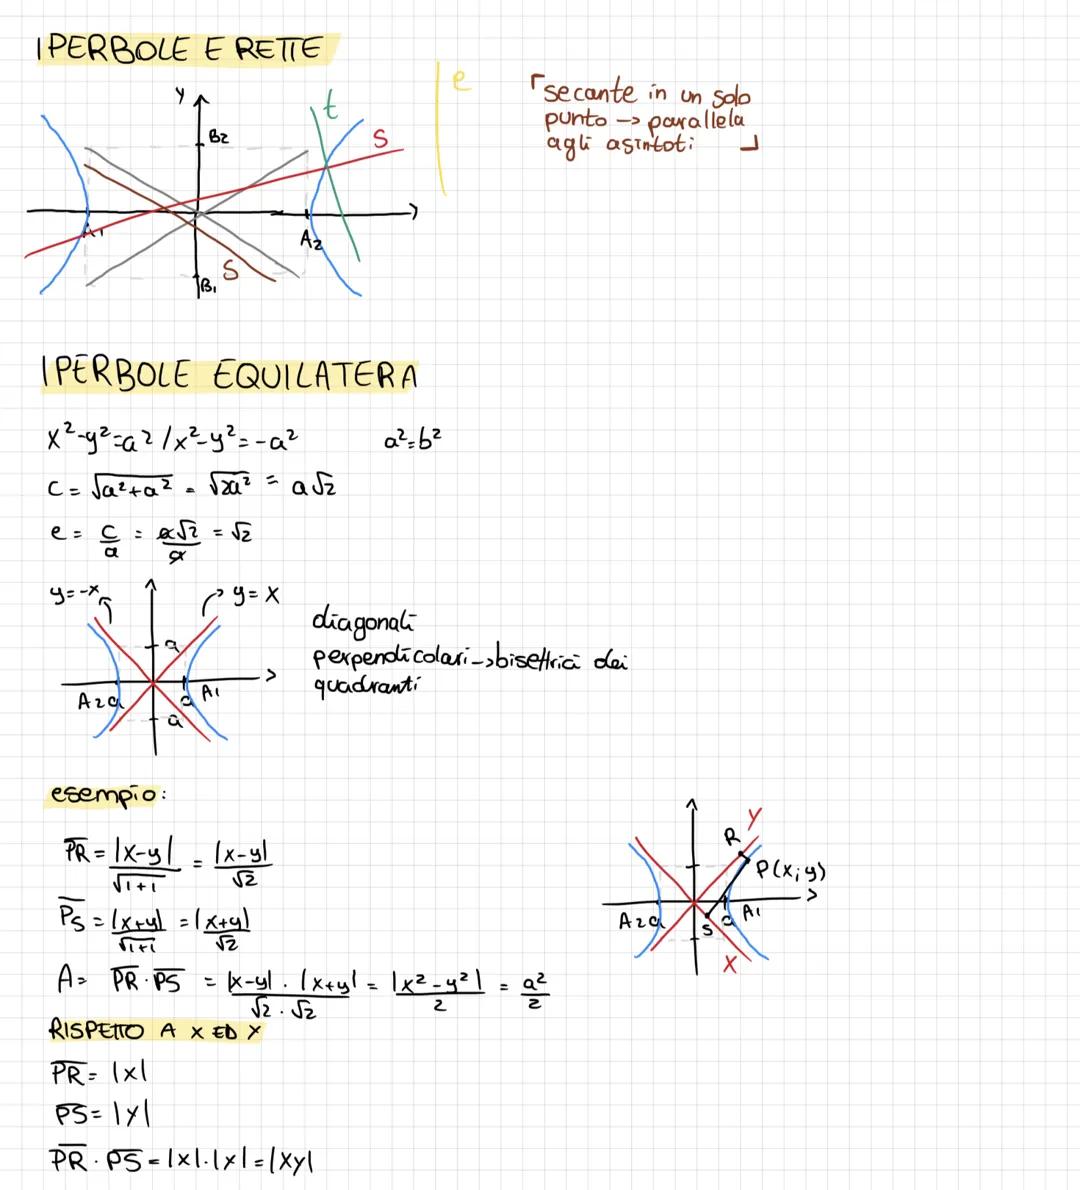 IPERBOLE E RETTE
y
B2
t
S
e
secante in un solo
punto -> parallela
agli asintoti
A1
A2
S
B1
IPERBOLE EQUILATERA
x²-y²=a² / x²-y²=-a² a²=b²
c = √a²+a² = √2a² = a√2
e = c/a = a√2/a = √2
y=-x
y=x
a
A2 a
a A1
a
diagonali
perpendicolari->bisettrici dei
quadranti
esempio:
PR = |x-y|/√1+1 = |x-y|/√2
PS = |x+y|/√1+1 = |x+y|/√2
A = PR · PS = |x-y| · |x+y|/√2 · √2 = |x²-y²|/2 = a²/2
Y
R
P(x;y)
A2 a
S
a A1
X
RISPETTO A X ED Y
PR = |X|
PS = |Y|
PR · PS = |X|·|Y| = |XY|